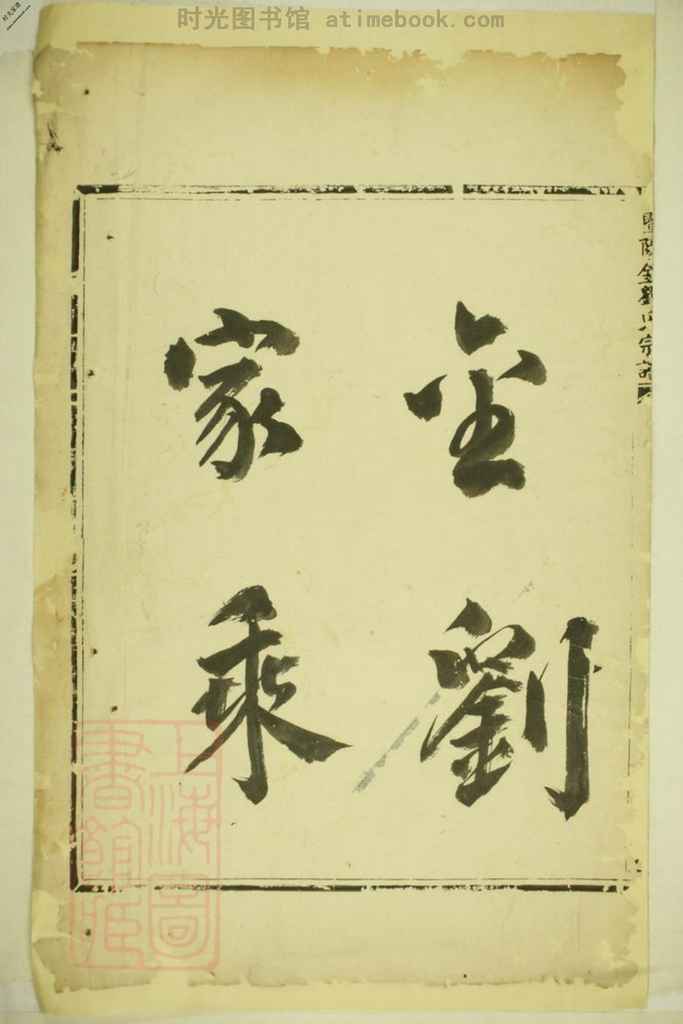 时光图书馆 atimebook.com
金劉
家乘
暨陽金劉氏宗譜
上海圖書館藏